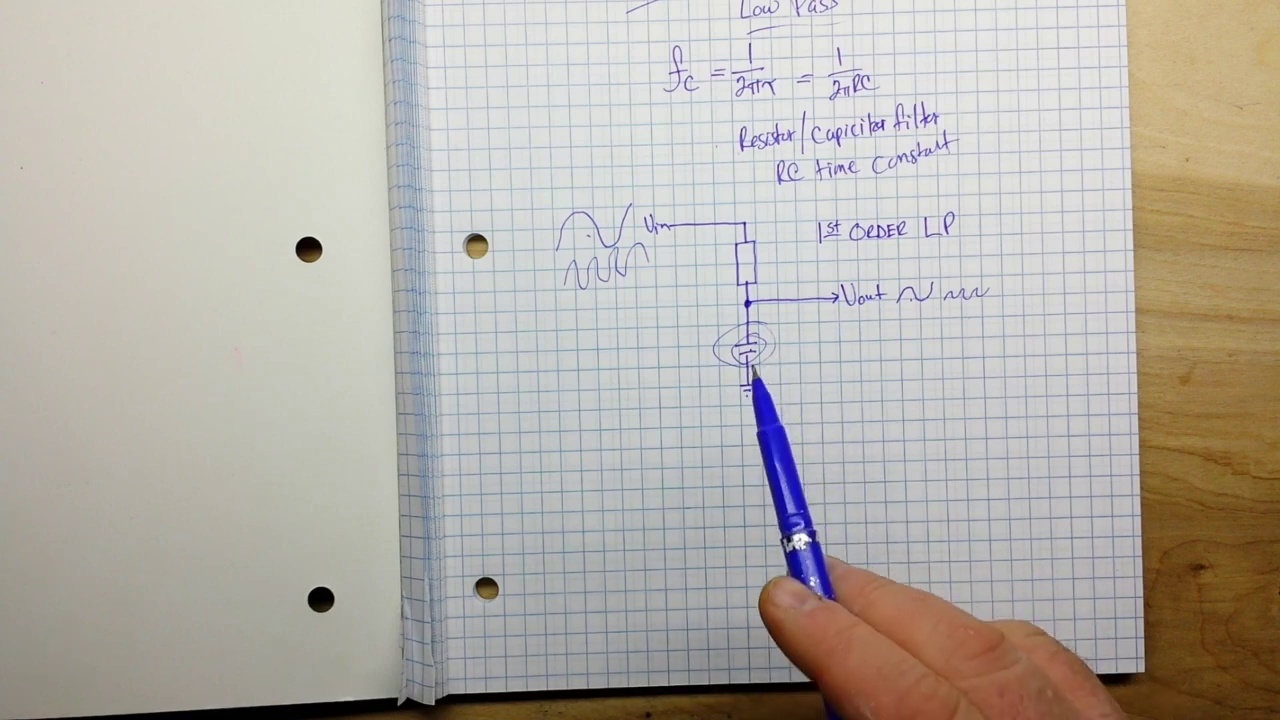 Low Pass
fc = 1/2πτ = 1/2πRC
Resistor/Capicitor filter
RC time constant
Vin
1st ORDER LP
Vout